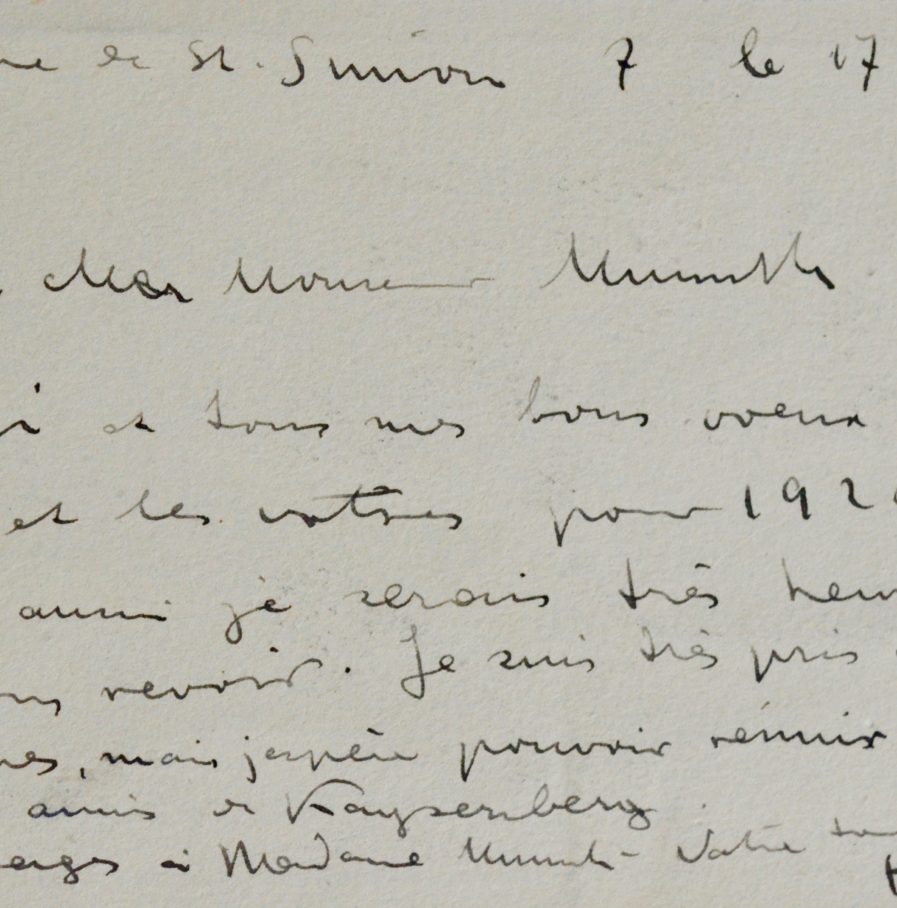 de St. Simon 7 le 17
cher Monsieur
et tous mes bons voeux
et les votres pour 192
aussi je serais très heu
revoir. Je suis très pris
mais j'espère pouvoir réunir
amis de Kaysersberg
à Madame Votre